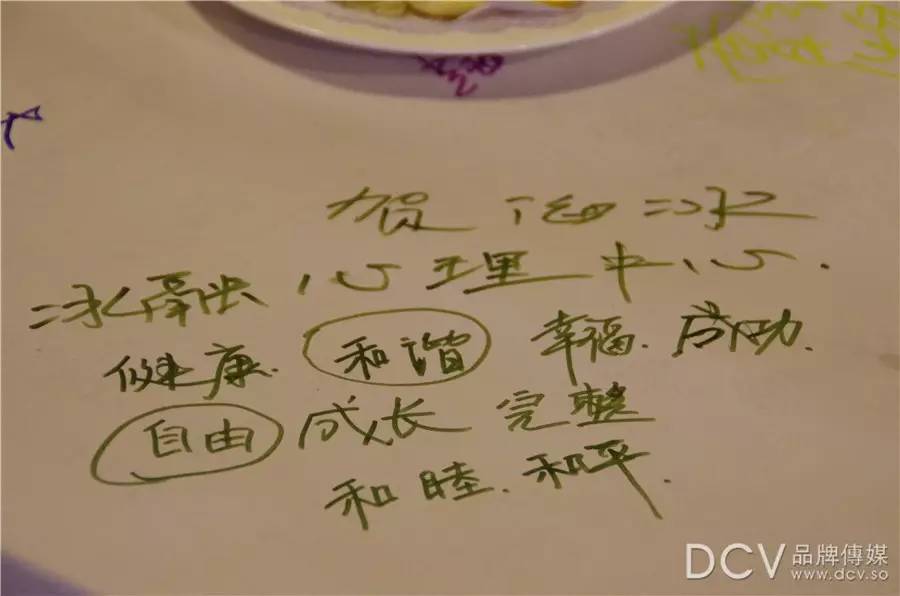 贺
冰融心理中心.
健康. 和谐 幸福. 成功.
自由 成长 完整
和睦. 和平.
DCV 品牌傳媒
www.dcv.so